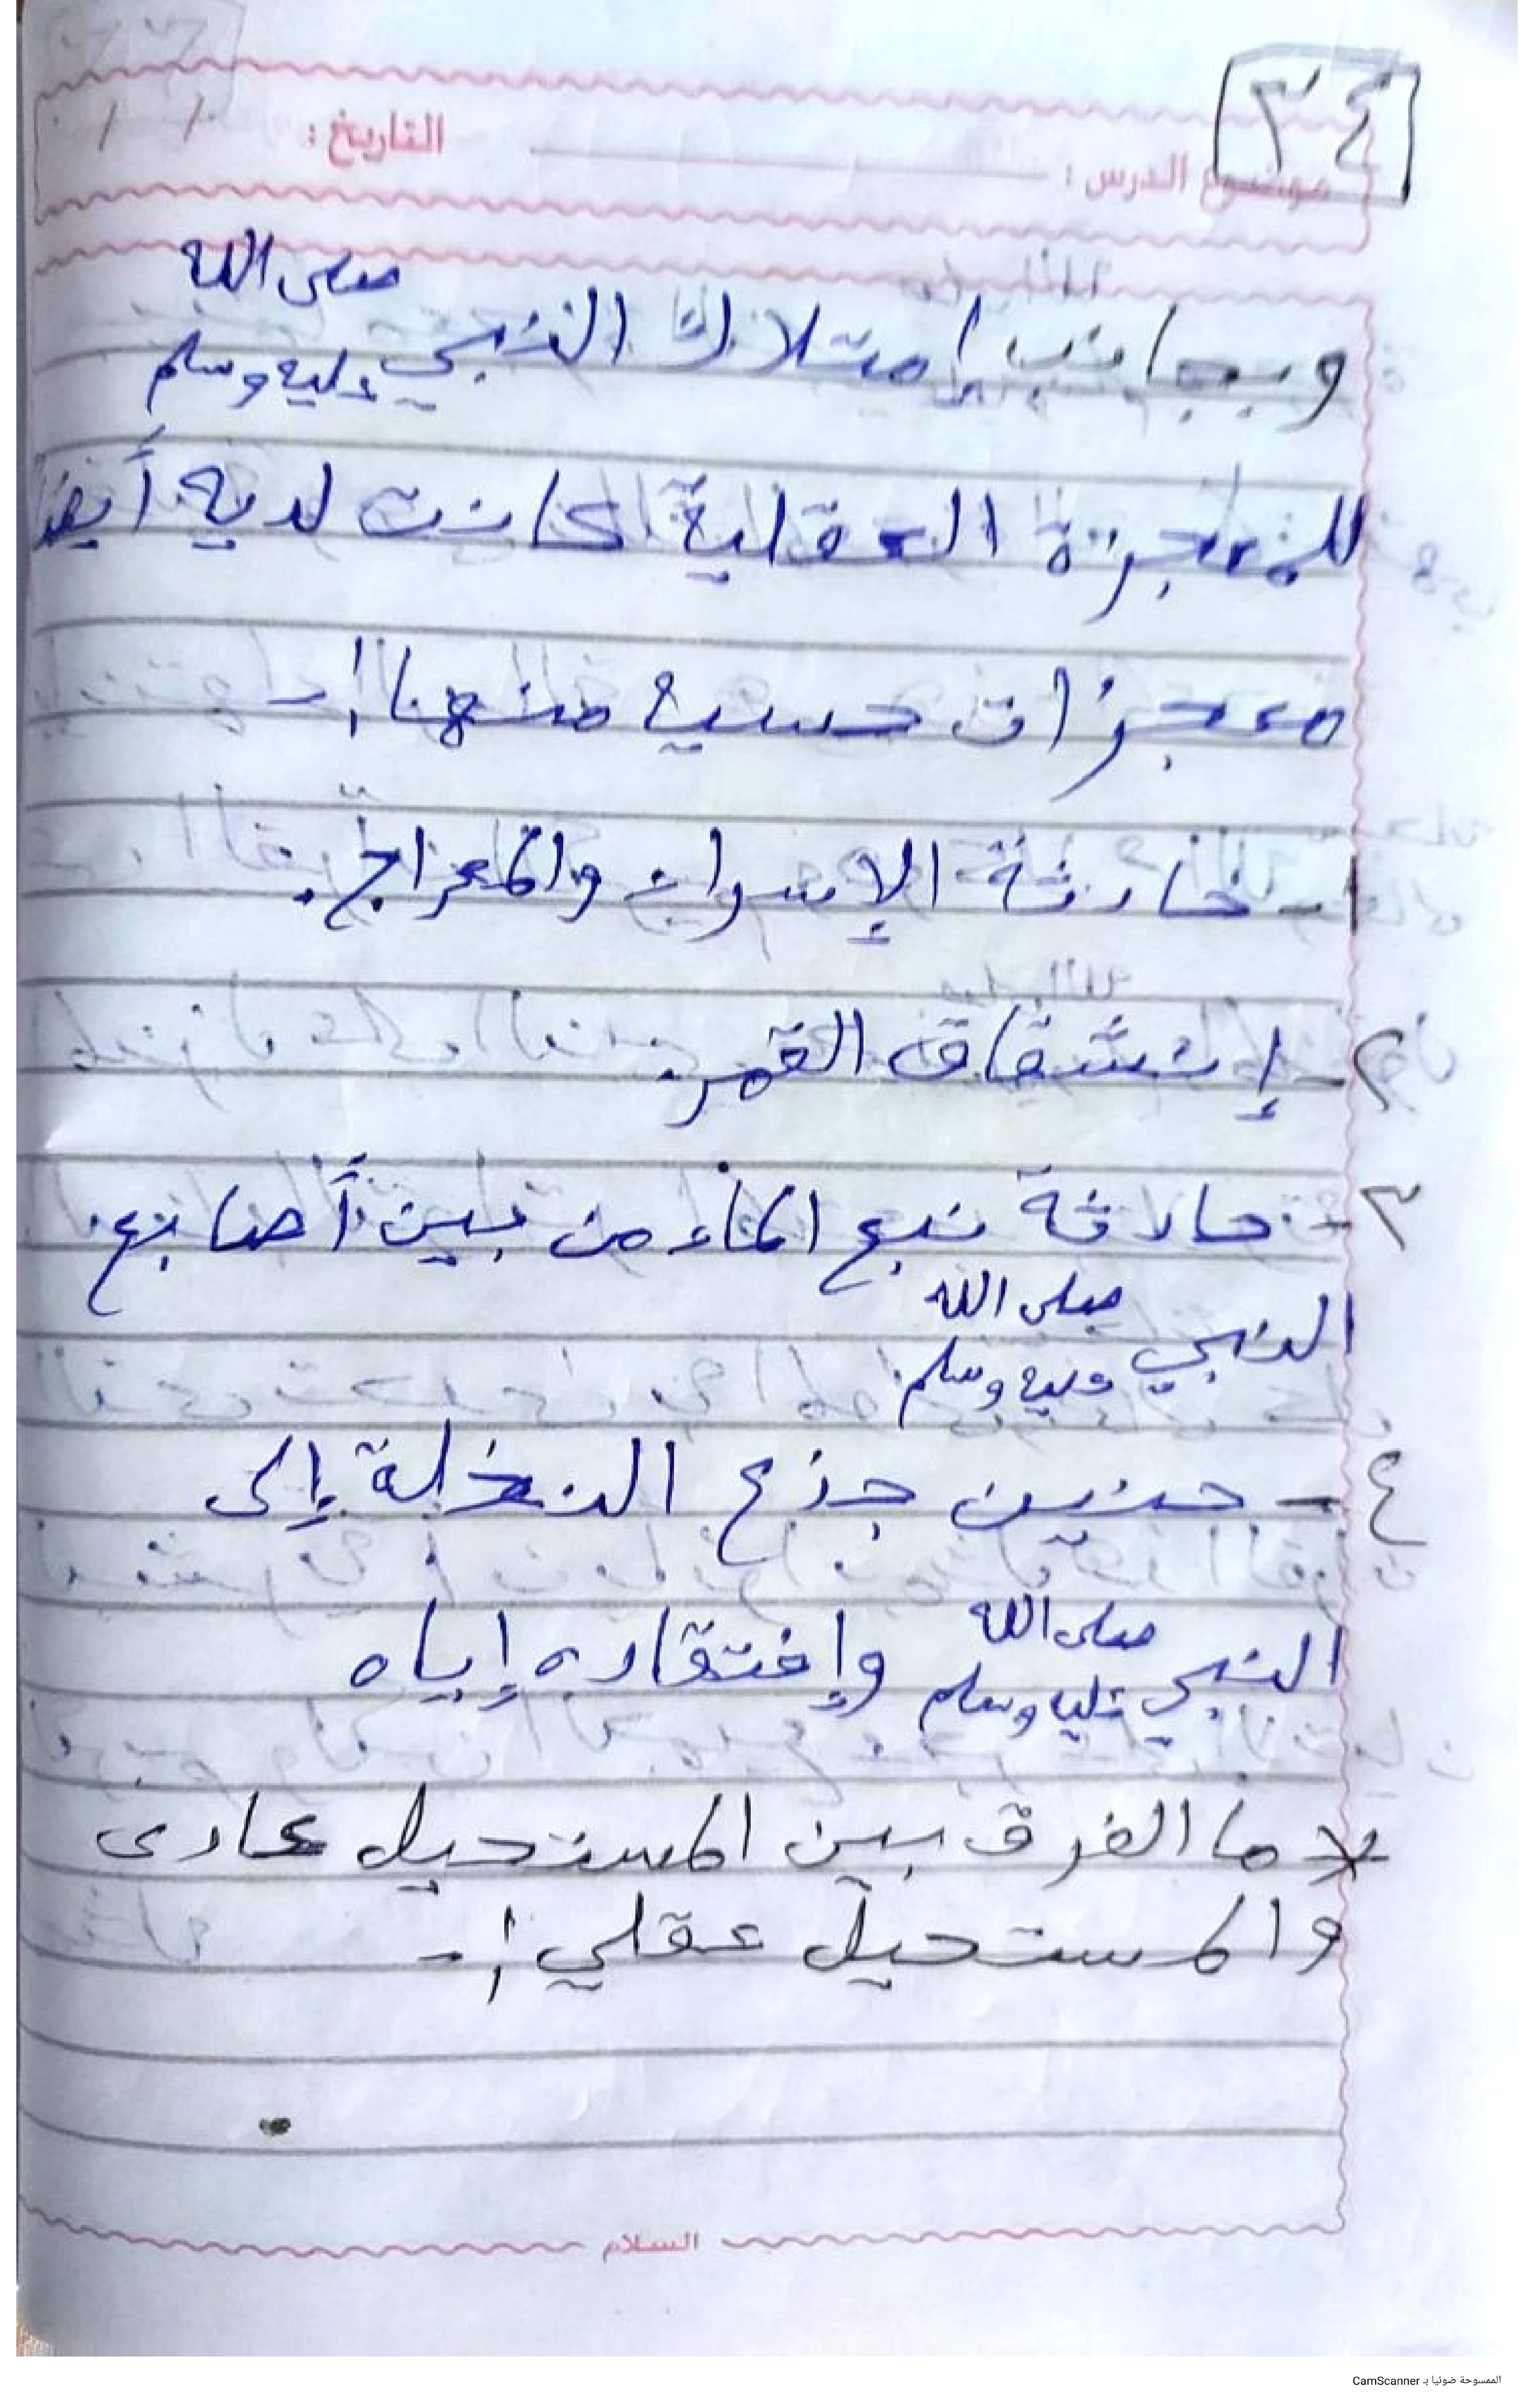 ٣٤
موضوع الدرس : التاريخ : / /
وبجانب إمتلاك النبي صلى الله عليه وسلم
للمعجزة العقلية كانت لديه أيضاً
معجزات حسيه منها :-
١- حادثة الإسراء والمعراج.
٢- إنشقاق القمر.
٣- حادثة نبع الماء من بين أصابع
النبي صلى الله عليه وسلم.
٤- حنين جذع النخلة إلى
النبي صلى الله عليه وسلم وإفتقاره إياه
ما الفرق بين المستحيل عادى
والمستحيل عقلي :-
السلام
الممسوحة ضوئيا بـ CamScanner